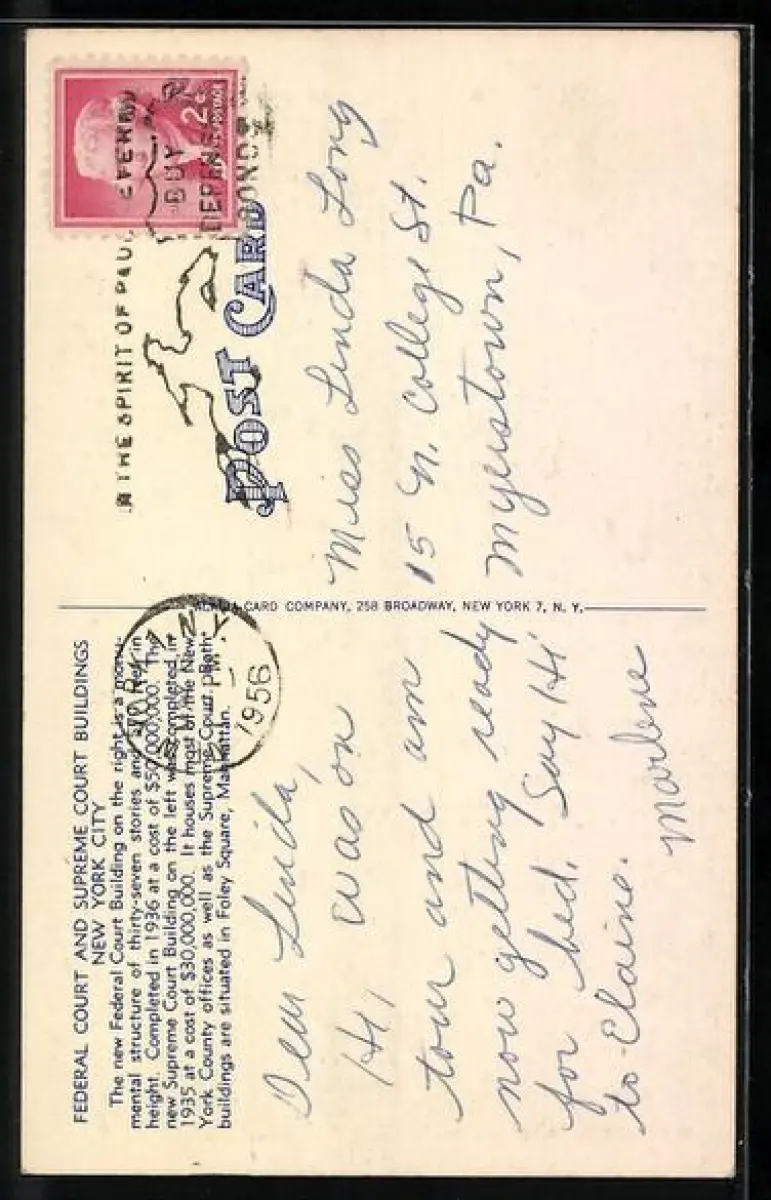 FEDERAL COURT AND SUPREME COURT BUILDINGS
NEW YORK CITY
The new Federal Court Building on the right is a monu-
mental structure of thirty-seven stories and feet in
height. Completed in 1936 at a cost of $50,000,000. The
new Supreme Court Building on the left was completed in
1935 at a cost of $30,000,000. It houses most of the New
York County offices as well as the Supreme Court. Both
buildings are situated in Foley Square, Manhattan.
Dear Linda,
Hi, was on
tour and am
now getting ready
for bed. Say Hi
to Elaine.
Marlene
CARD COMPANY, 258 BROADWAY, NEW YORK 7, N. Y.
N.Y.
PM
1956
THE SPIRIT OF PAUL REVERE
BUY
DEFENSE
BONDS
2¢
U.S. POSTAGE
POST CARD
Miss Linda Long
15 N. College St.
Myerstown, Pa.